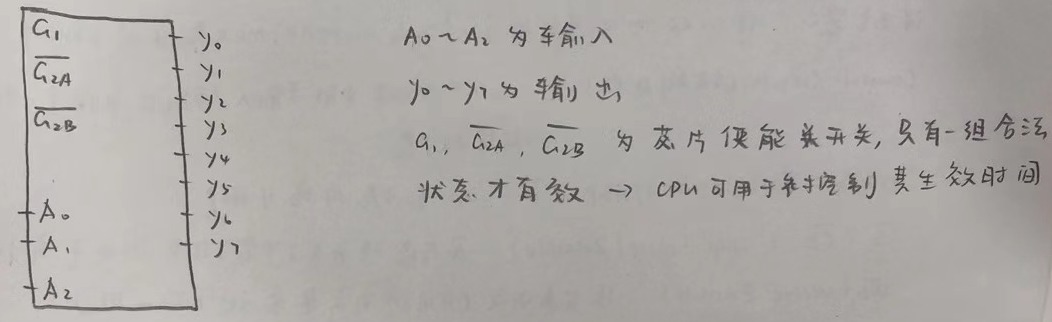 G₁
G̅₂̅A̅
G̅₂̅B̅
A₀
A₁
A₂
y₀
y₁
y₂
y₃
y₄
y₅
y₆
y₇
A₀~A₂ 为输入
y₀~y₇ 为输出
G₁, G̅₂̅A̅, G̅₂̅B̅ 为芯片使能开关,只有一组合法
状态才有效 → CPU可用于控制其生效时间